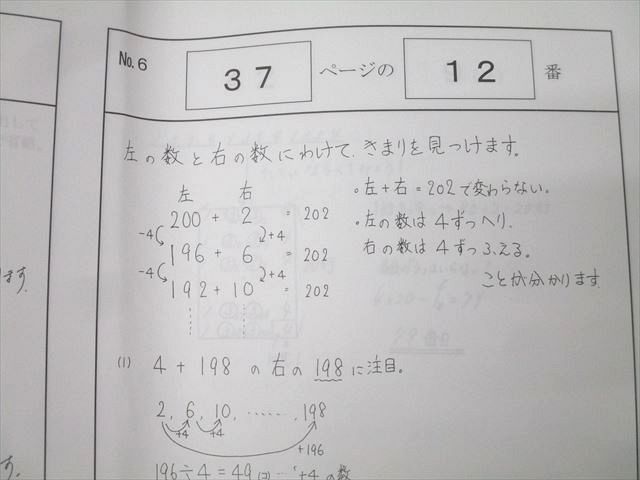 No.6 37 ページの 12 番
左の数と右の数にわけて、きまりを見つけます。
左 右
200 + 2 = 202
-4 +4
196 + 6 = 202
-4 +4
192 + 10 = 202
。左+右=202で変わらない。
。左の数は4ずつへり、
右の数は4ずつふえる。
ことが分かります
(1) 4 + 198 の右の198に注目。
2, 6, 10, ……, 198
+4 +4
+196
196÷4=49 … +4の数
ます。
す。